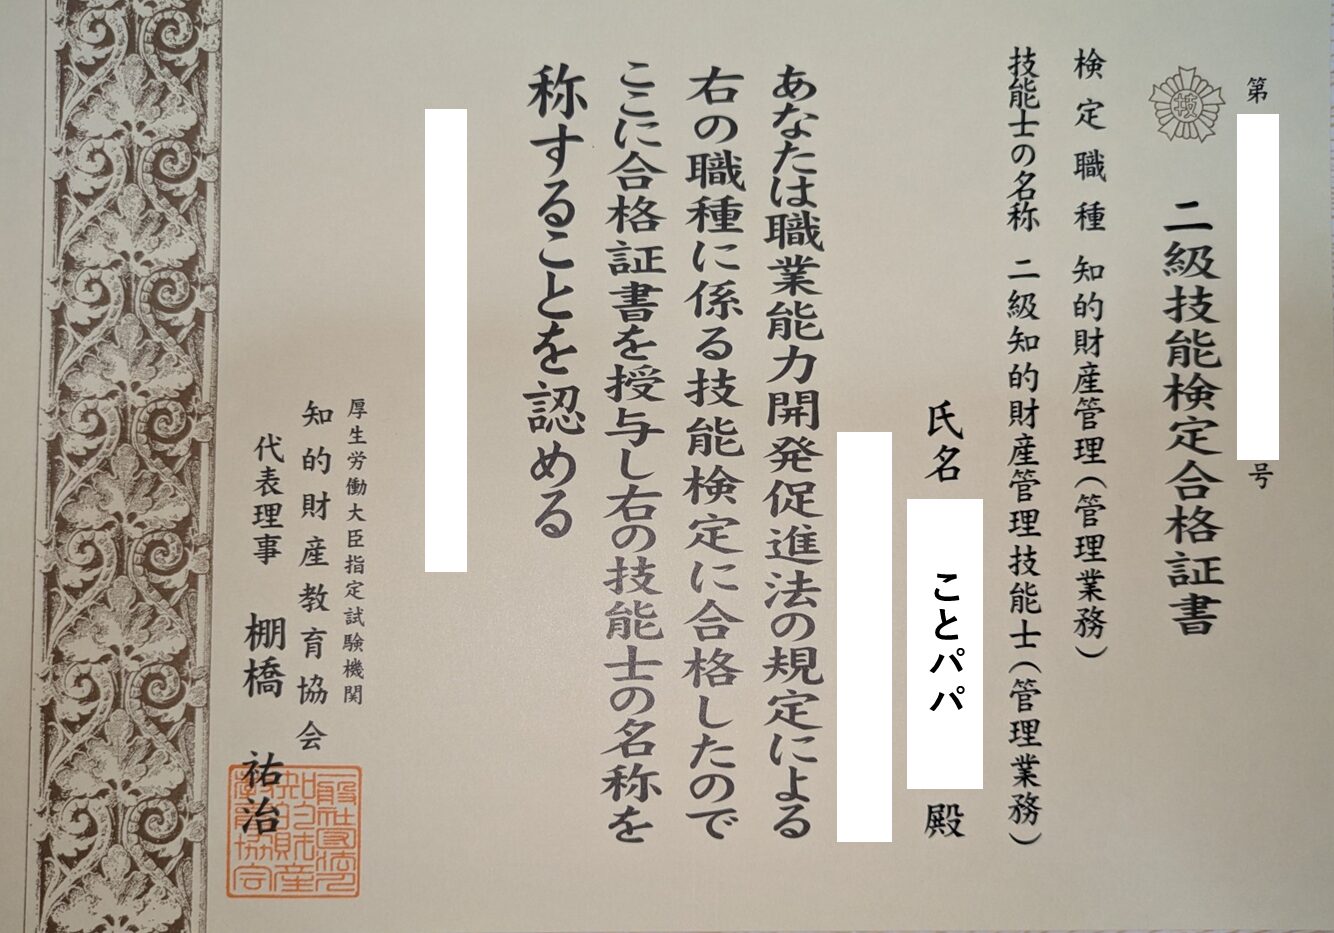 第 号
二級技能検定合格証書
検定職種 知的財産管理(管理業務)
技能士の名称 二級知的財産管理技能士(管理業務)
氏名 ことパパ 殿
あなたは職業能力開発促進法の規定による
右の職種に係る技能検定に合格したので
ここに合格証書を授与し右の技能士の名称を
称することを認める
厚生労働大臣指定試験機関
知的財産教育協会
代表理事 棚橋 祐治